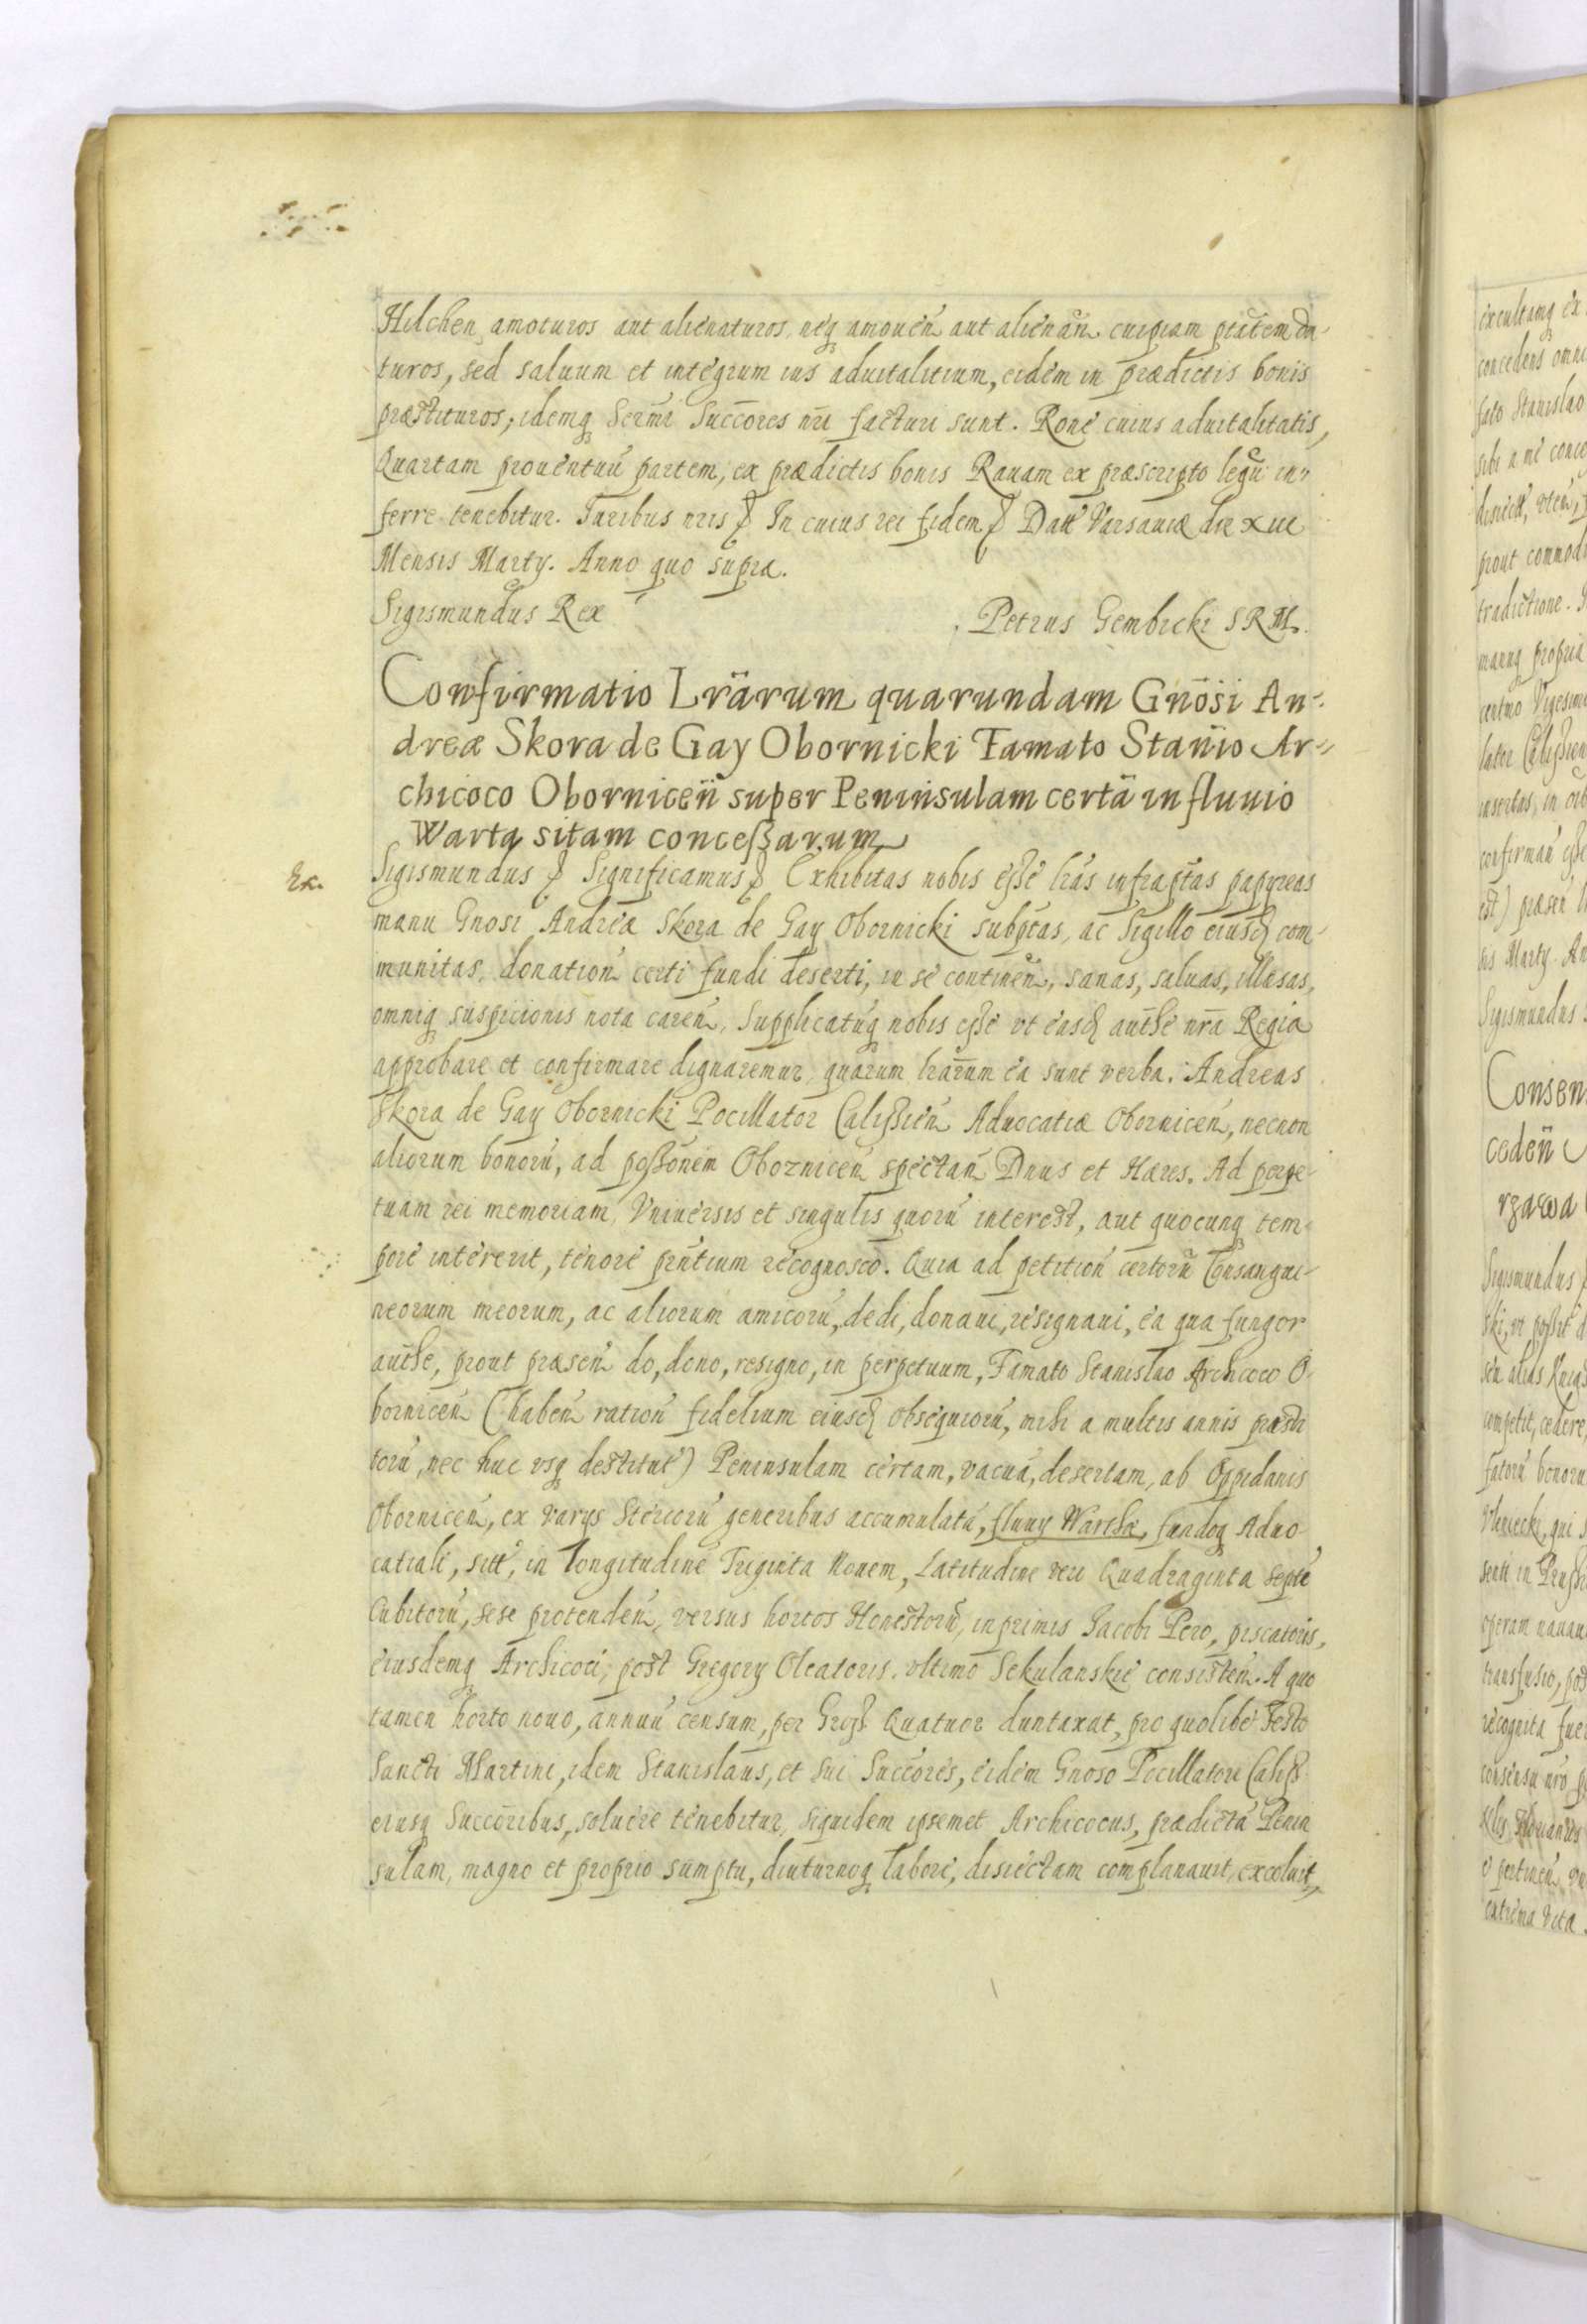 Hilchen amoturos aut alienaturos, neq amouen̄ aut alienan̄ cuipiam ptātem da-
turos, sed saluum et integrum ius aduitalitium, eidem in prædictis boniis
præstituros; idemq Serm̄i Succōres nr̄i facturi sunt. Rōne cuius aduitalitatis,
Quartam prouentuū partem, ex prædictis bonis Rauam ex præscripto legū in-
ferre tenebitur. Iuribus nr̄is ꝑ In cuius rei fidem ꝑ Datt Varsauiæ die XIII
Mensis Marty. Anno quo supra.
Sigismundus Rex
Petrus Gembicki SRM.
Confirmatio Lrārum quarundam Gnōsi An-
dreæ Skora de Gay Obornicki Famato Stanīo Ar-
chicoco Obornicen̄ super Peninsulam certā in fluuio
Warta sitam conceßarum
Ex.
Sigismundus ꝑ Significamus ꝑ Exhibitas nobis eße lrās infraptas papyreas
manu Gnosi Andreæ Skora de Gay Obornicki subptas, ac Sigillo eiusd com-
munitas, donation̄ certi fundi deserti, in se continen̄, sanas, saluas, illæsas,
omniq suspicionis nota caren̄, Supplicatūq nobis eße vt easd autħe nr̄a Regia
approbare et confirmare dignaremur, quarum lrārum ea sunt verba. Andreas
Skora de Gay Obornicki Pocillator Calißien̄ Aduocatiæ Obornicen̄, necnon
aliorum bonorū, ad poßōnem Obornicen̄ spectan̄ Dnus et Hæres. Ad perpe-
tuam rei memoriam, Vniuersis et singulis quorū interest, aut quocunq tem-
pore intererit, tenore pn̄tium recognosco. Quia ad petition̄ certorū Consangui-
neorum meorum, ac aliorum amicorū, dedi, donaui, resignaui, ea qua fungor
autħe, prout præsen̄ do, dono, resigno, in perpetuum, Famato Stanislao Archicoco O-
bornicen̄ (haben̄ ration̄ fidelium eiusd obsequiorū, mihi a multis annis præsti
torū, nec huc vsq destitut) Peninsulam certam, vacuā, desertam, ab Oppidanis
Obornicen̄, ex varys Stercorū generibus accumulatā, fluuy Warthæ, fundoq Aduo-
catiali, sitt, in longitudine Triginta Nouem, Latitudine vero Quadraginta septē
Cubitorū, sese protenden̄, versus hortos Honestorū, inprimis Jacobi Pero, piscatoris,
eiusdemq Archicoci, post Gregory Oleatoris. vltimo Sekulanskie consisten̄. A quo
tamen horto nouo, annuū censum, per Groß Quatuor duntaxat, pro quolibet Festo
Sancti Martini, idem Stanislaus, et sui Succōres, eidem Gnoso Pocillatori Caliß
eiusq Succōribus, soluere tenebitur, siquidem ipsemet Archicocus, prædictā Penin
sulam, magno et proprio sumptu, diuturnoq labore, disiectam complanauit, excoluit,